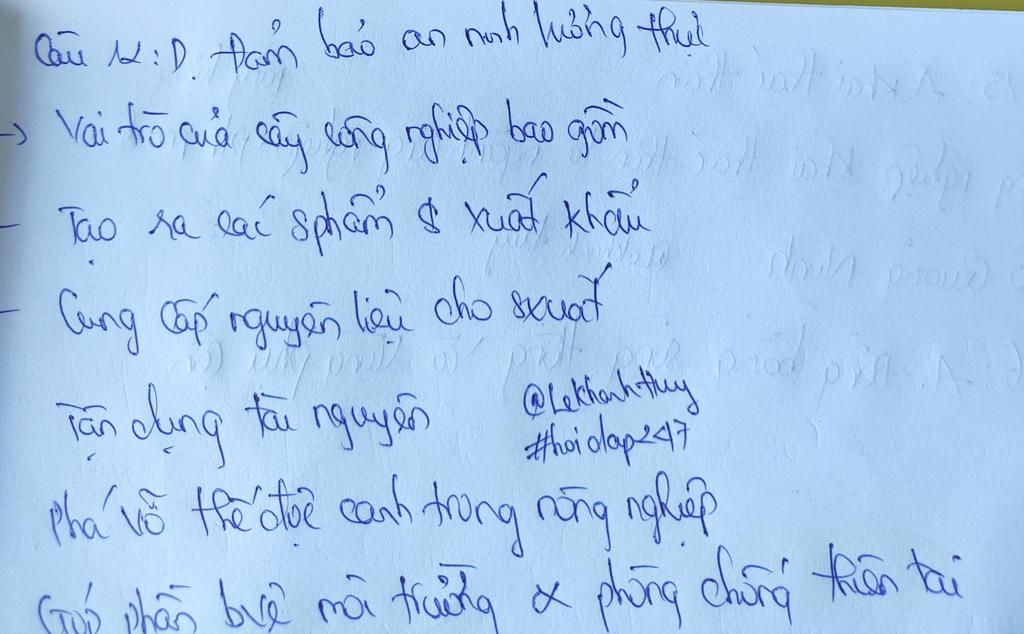 Câu 12: D. Đảm bảo an ninh lương thực
→ Vai trò của cây công nghiệp bao gồm
- Tạo ra các sphẩm & xuất khẩu
- Cung cấp nguyên liệu cho sxuất
Tận dụng tài nguyên
@Lekhanhthuy
#hoidap247
phá vỡ thế độc canh trong nông nghiệp
Góp phần bvệ môi trường & phòng chống thiên tai